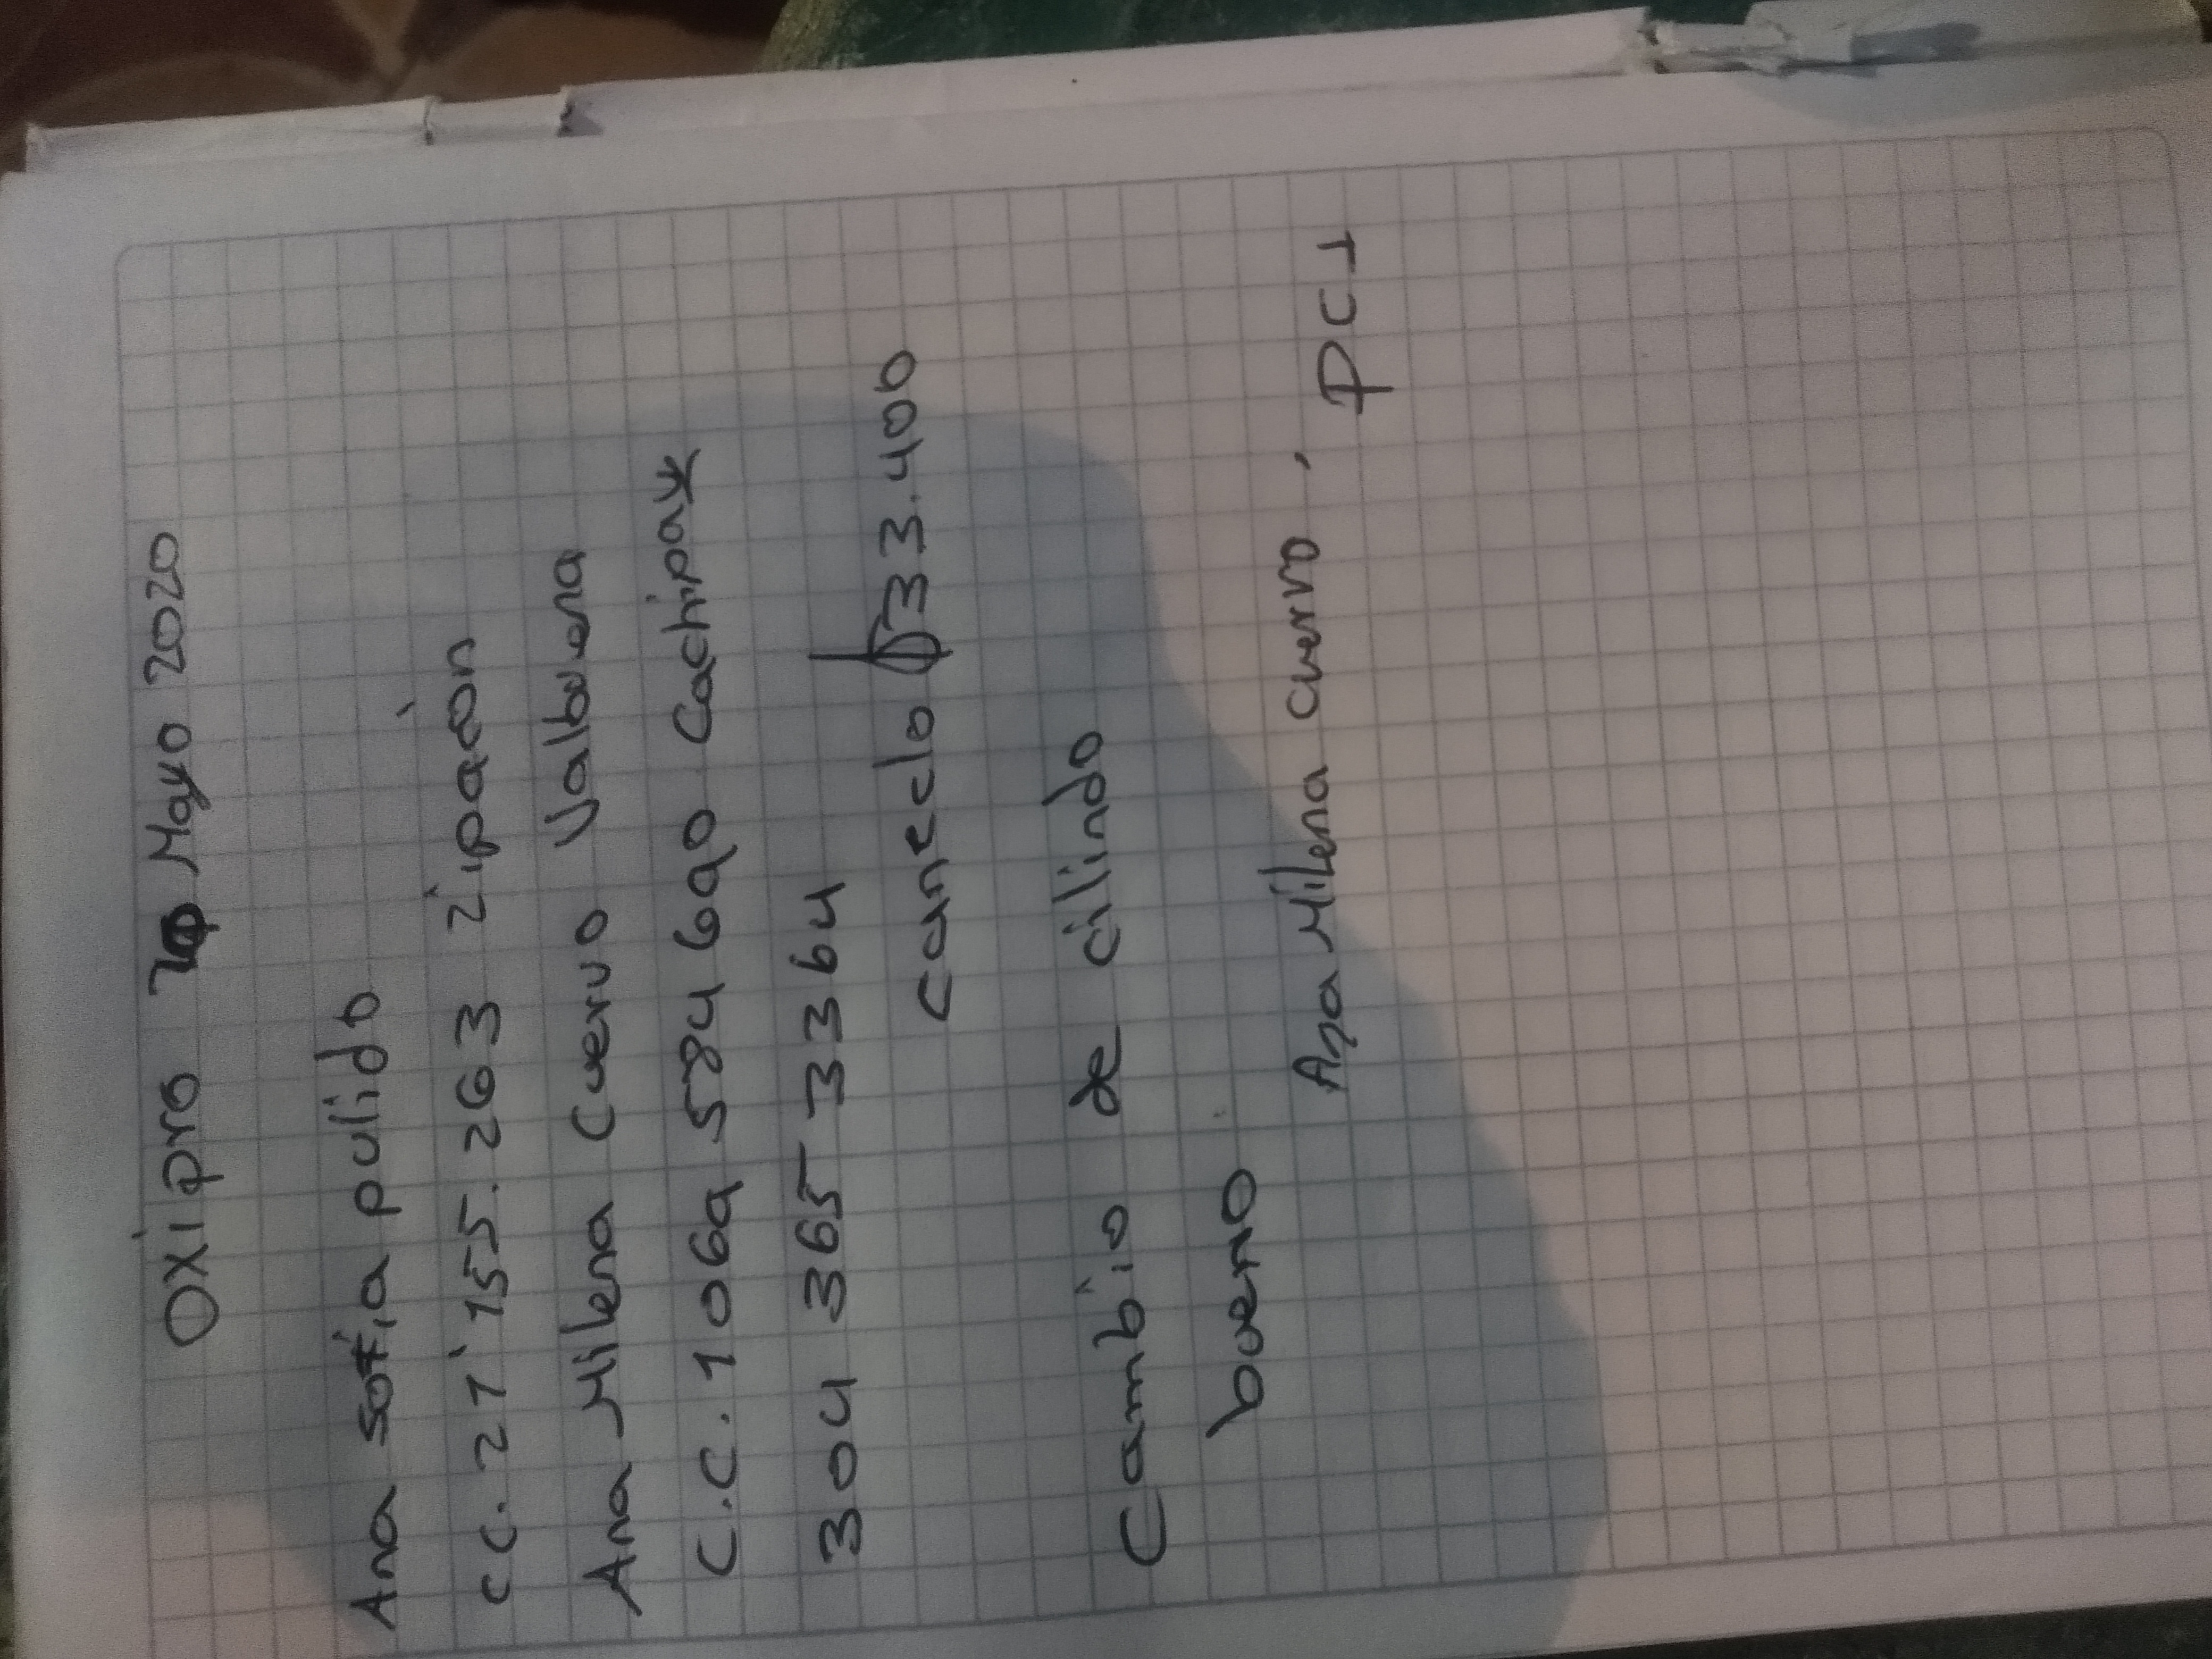 OXipro Mayo 2020
Ana sofia pulido
C.C. 21'155.263 Zipacón
Ana Milena Cuervo Valbuena
C.C. 1069 584 690 Cachipay
304 365 3364
Canecla $33.400
Cambio de cilindo
bueno
Ana Milena Cuervo, PCT